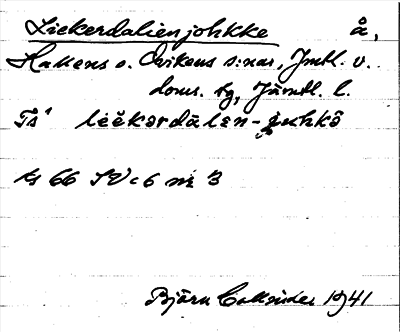 Liekerdalienjohkke å,
Hallens o. Ovikens s:nar, Jmtl. v.
doms. tg, Jämtl. l.
Ts¹ lēĕkərdālɛn-juhkō
ts 66 SV c 6 nr 3
Björn Collinder 1941